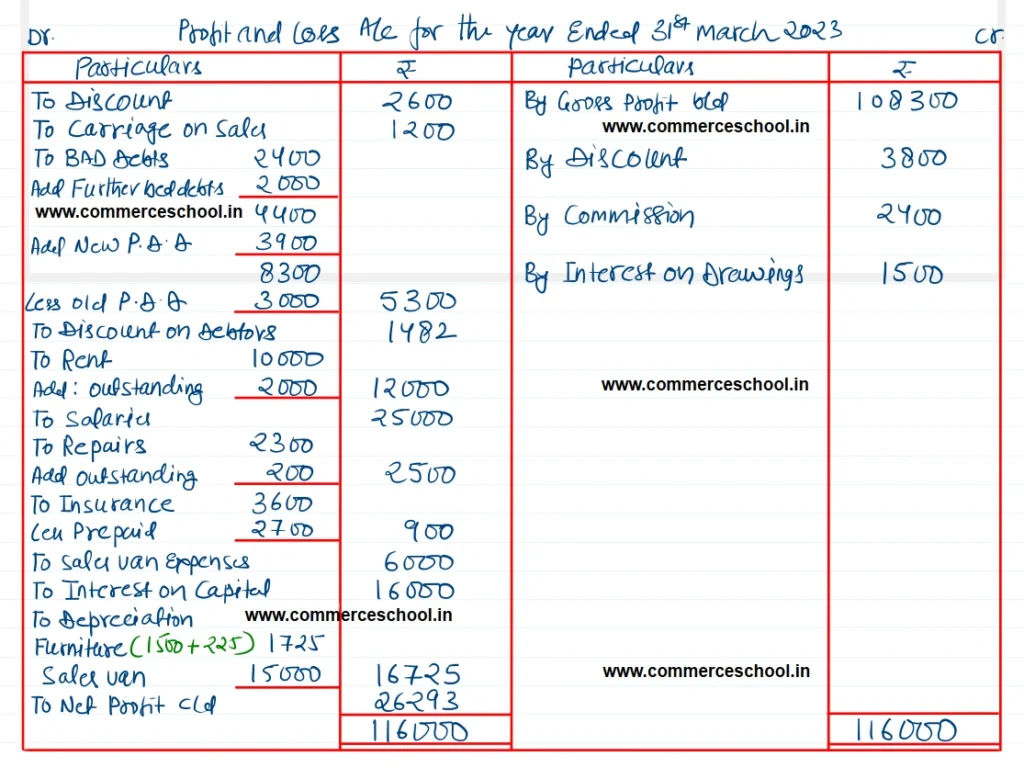 Profit and Loss A/c for the year Ended 31st march 2023
Dr. Cr.
Particulars ₹ Particulars ₹
To Discount 2600 By Gross Profit b/d 108300
To Carriage on Sales 1200 www.commerceschool.in
To BAD debts 2400 By Discount 3800
Add Further bad debts 2000
www.commerceschool.in 4400 By Commission 2400
Add New P.D.D 3900
8300 By Interest on Drawings 1500
Less old P.D.D 3000 5300
To Discount on Debtors 1482
To Rent 10000
Add: outstanding 2000 12000 www.commerceschool.in
To Salaries 25000
To Repairs 2300
Add outstanding 200 2500
To Insurance 3600
Less Prepaid 2700 900
To Sales van Expenses 6000
To Interest on Capital 16000
To Depreciation www.commerceschool.in
Furniture (1500+225) 1725
Sales van 15000 16725 www.commerceschool.in
To Net Profit c/d 26293
116000 116000